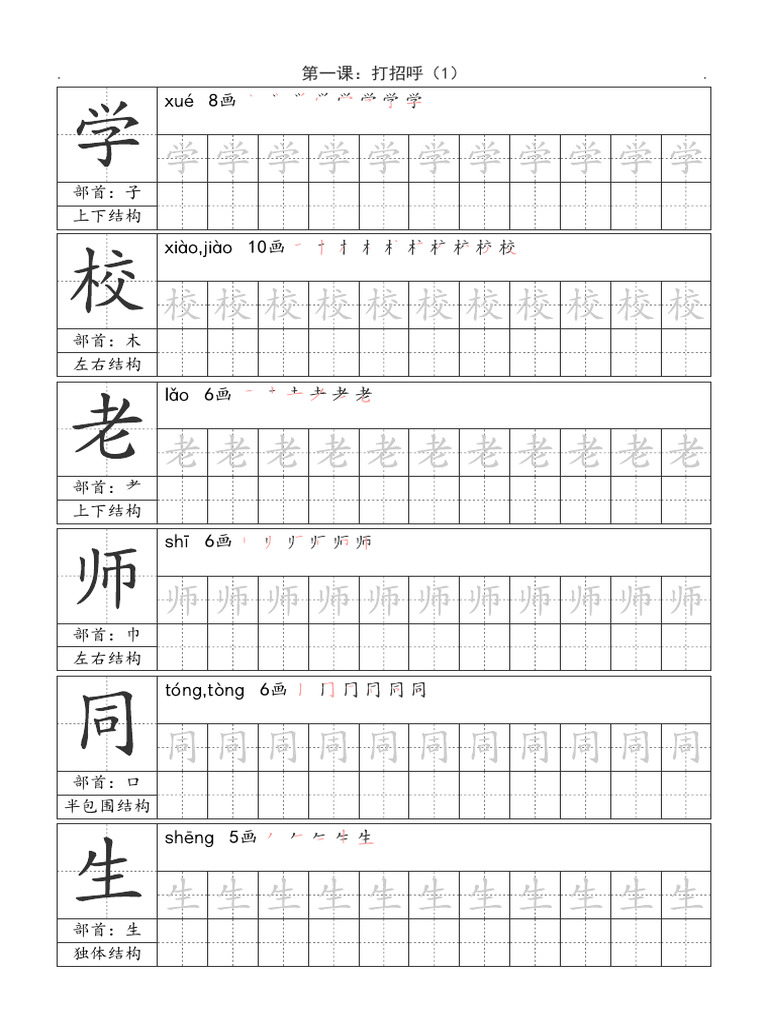 第一课：打招呼（1）
学
xué 8画
学 学 学 学 学 学 学 学 学 学 学
部首：子
上下结构
校
xiào,jiào 10画
校 校 校 校 校 校 校 校 校 校 校
部首：木
左右结构
老
lǎo 6画
老 老 老 老 老 老 老 老 老 老 老
部首：耂
上下结构
师
shī 6画
师 师 师 师 师 师 师 师 师 师 师
部首：巾
左右结构
同
tóng,tòng 6画
同 同 同 同 同 同 同 同 同 同 同
部首：口
半包围结构
生
shēng 5画
生 生 生 生 生 生 生 生 生 生 生
部首：生
独体结构